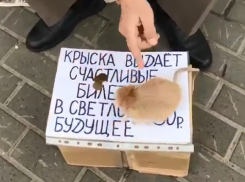 КРЫСКА ВЫДАЕТ
СЧАСТЛИВЫЕ
БИЛЕ
В СВЕТЛО 50р.
БУДУЩЕЕ